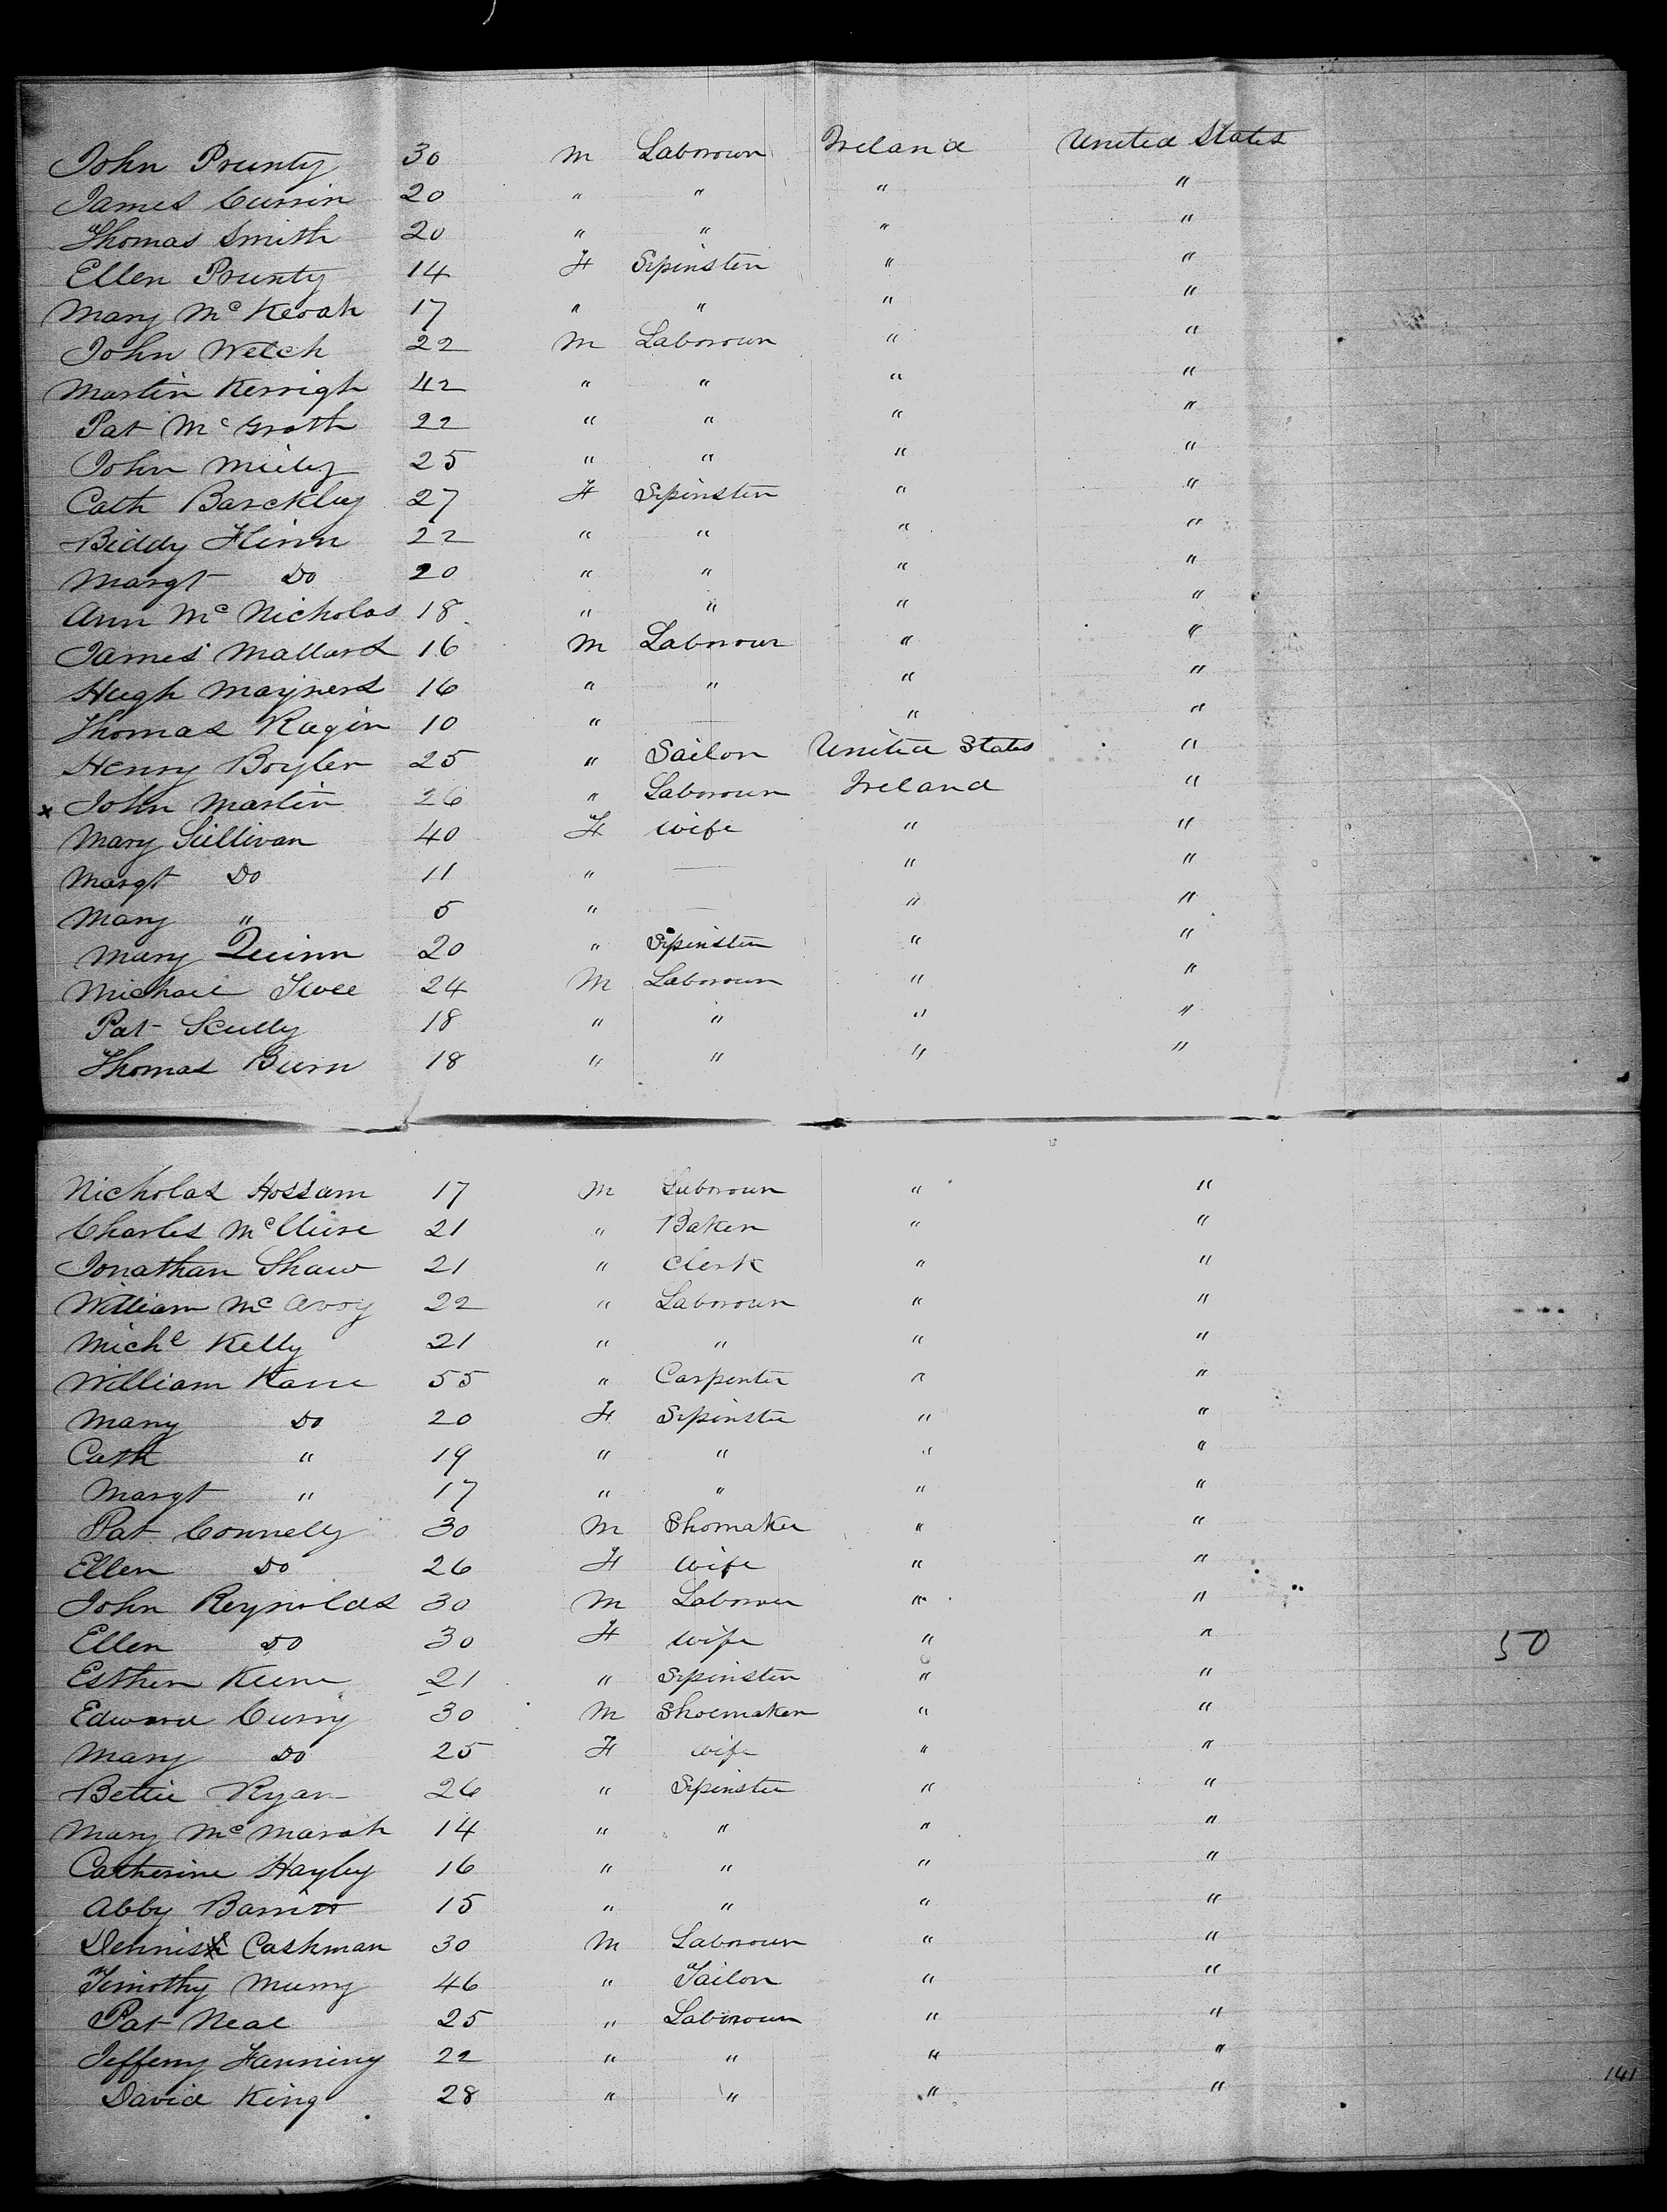 John Prunty 30 M Labourer Ireland United States
James Currin 20 " " " "
Thomas Smith 20 " " " "
Ellen Prunty 14 F Spinster " "
Mary McKeoah 17 " " " "
John Welch 22 M Labourer " "
Martin Kerrigh 42 " " " "
Pat McGrath 22 " " " "
John Miely 25 " " " "
Cath Barckley 27 F Spinster " "
Biddy Flinn 22 " " " "
Margt Do 20 " " " "
Ann McNicholas 18 " " " "
James Mallard 16 M Labourer " "
Hugh Maynerd 16 " " " "
Thomas Ragin 10 " — " "
Henry Boyler 25 " Sailor United States "
x John Martin 26 " Labourer Ireland "
Mary Sullivan 40 F Wife " "
Margt Do 11 " — " "
Mary " 5 " — " "
Mary Quinn 20 " Spinster " "
Michael 24 M Labourer " "
Pat Scully 18 " " " "
Thomas Burn 18 " " " "
Nicholas Hossam 17 M Labourer " "
Charles McClure 21 " Baker " "
Jonathan Shaw 21 " Clerk " "
William McAvoy 22 " Labourer " "
Michl Kelly 21 " " " "
William Kane 55 " Carpenter " "
Mary Do 20 F Spinster " "
Cath " 19 " " " "
Margt " 17 " " " "
Pat Connelly 30 M Shomaker " "
Ellen Do 26 F Wife " "
John Reynolds 30 M Labourer " "
Ellen Do 30 F Wife " " 50
Esther 21 " Spinster " "
Edward Curry 30 M Shoemaker " "
Mary Do 25 F Wife " "
Bettie Ryan 26 " Spinster " "
Mary McMarah 14 " " " "
Catherine Hayley 16 " " " "
Abby Barritt 15 " " " "
Dennis Cashman 30 M Labourer " "
Timothy Murry 46 " Tailor " "
Pat Neal 25 " Labourer " "
Jefferry Fanning 22 " " " "
David King 28 " " " "
141